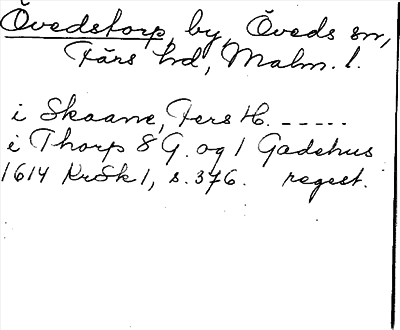 Övedstorp, by, Öveds sn,
Färs hd, Malm. l.
i Skaane, Fers H. -----
i Thorp 8 G. og 1 Gadehus
1614 KrSk 1, s. 376. regest.